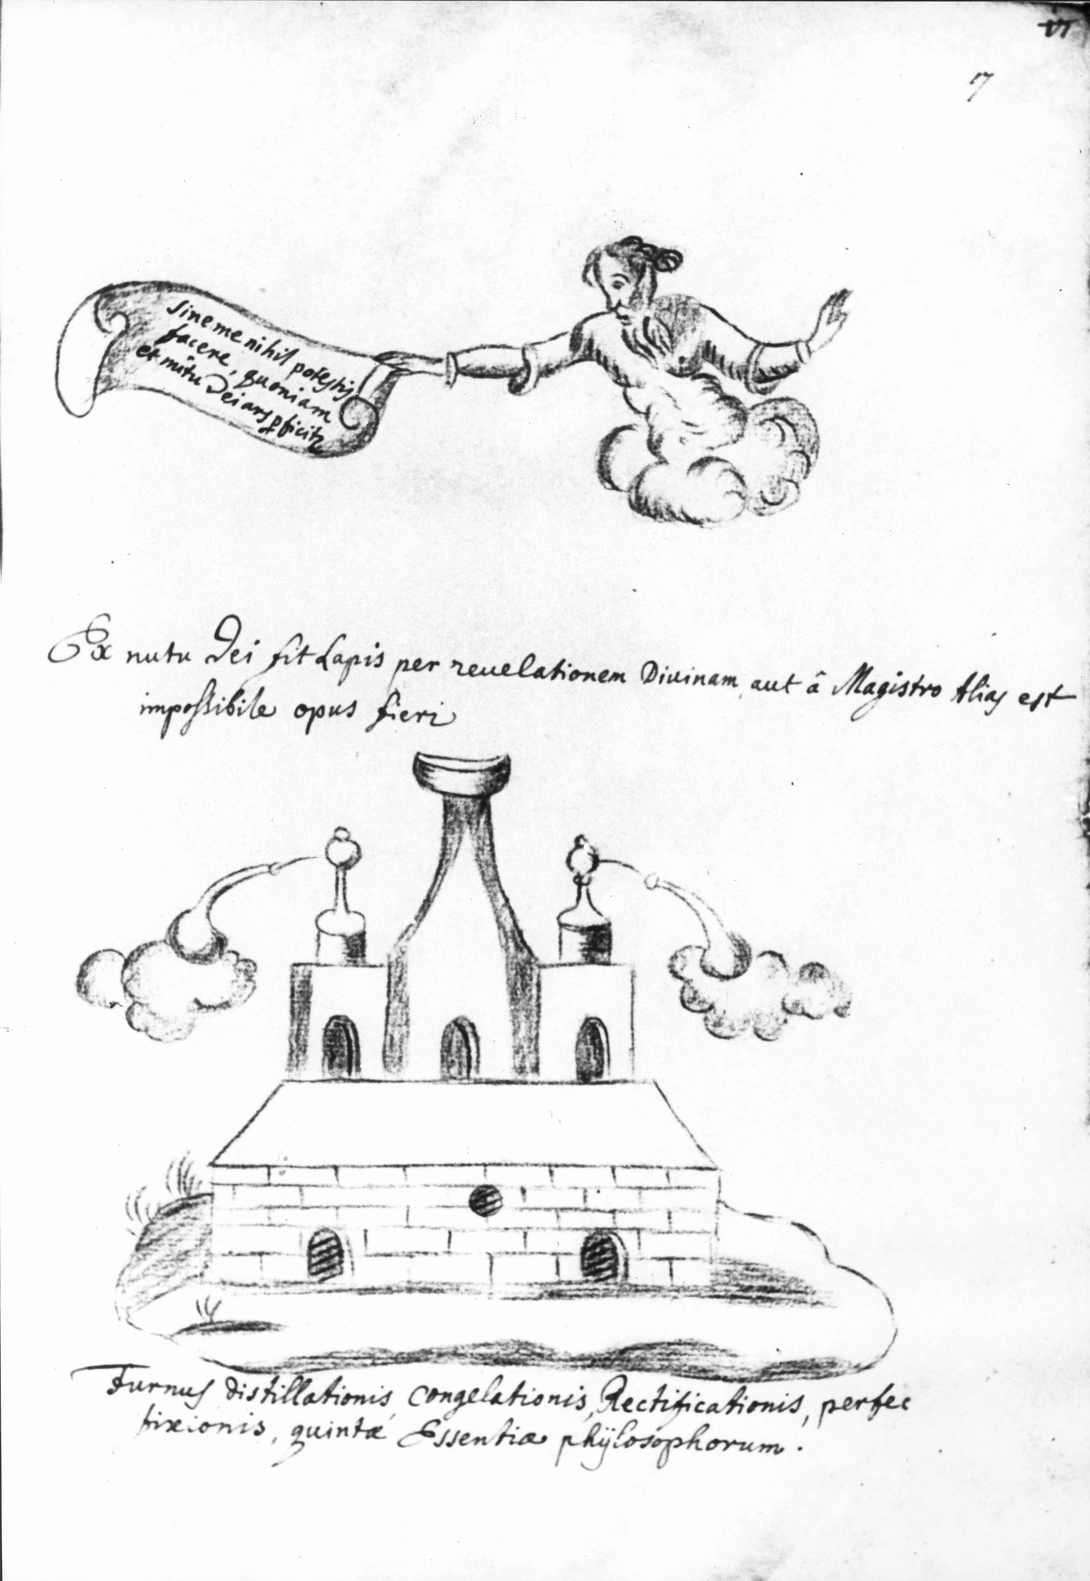 17
Sine me nihil potestis
facere, quoniam
et nutu Dei ars pficit
Ex nutu Dei fit Lapis per reuelationem Diuinam, aut â Magistro Alias est
impossibile opus fieri
Furnus distillationis, congelationis, Rectificationis, perfec
fixionis, quintæ Essentiæ phÿlosophorum.